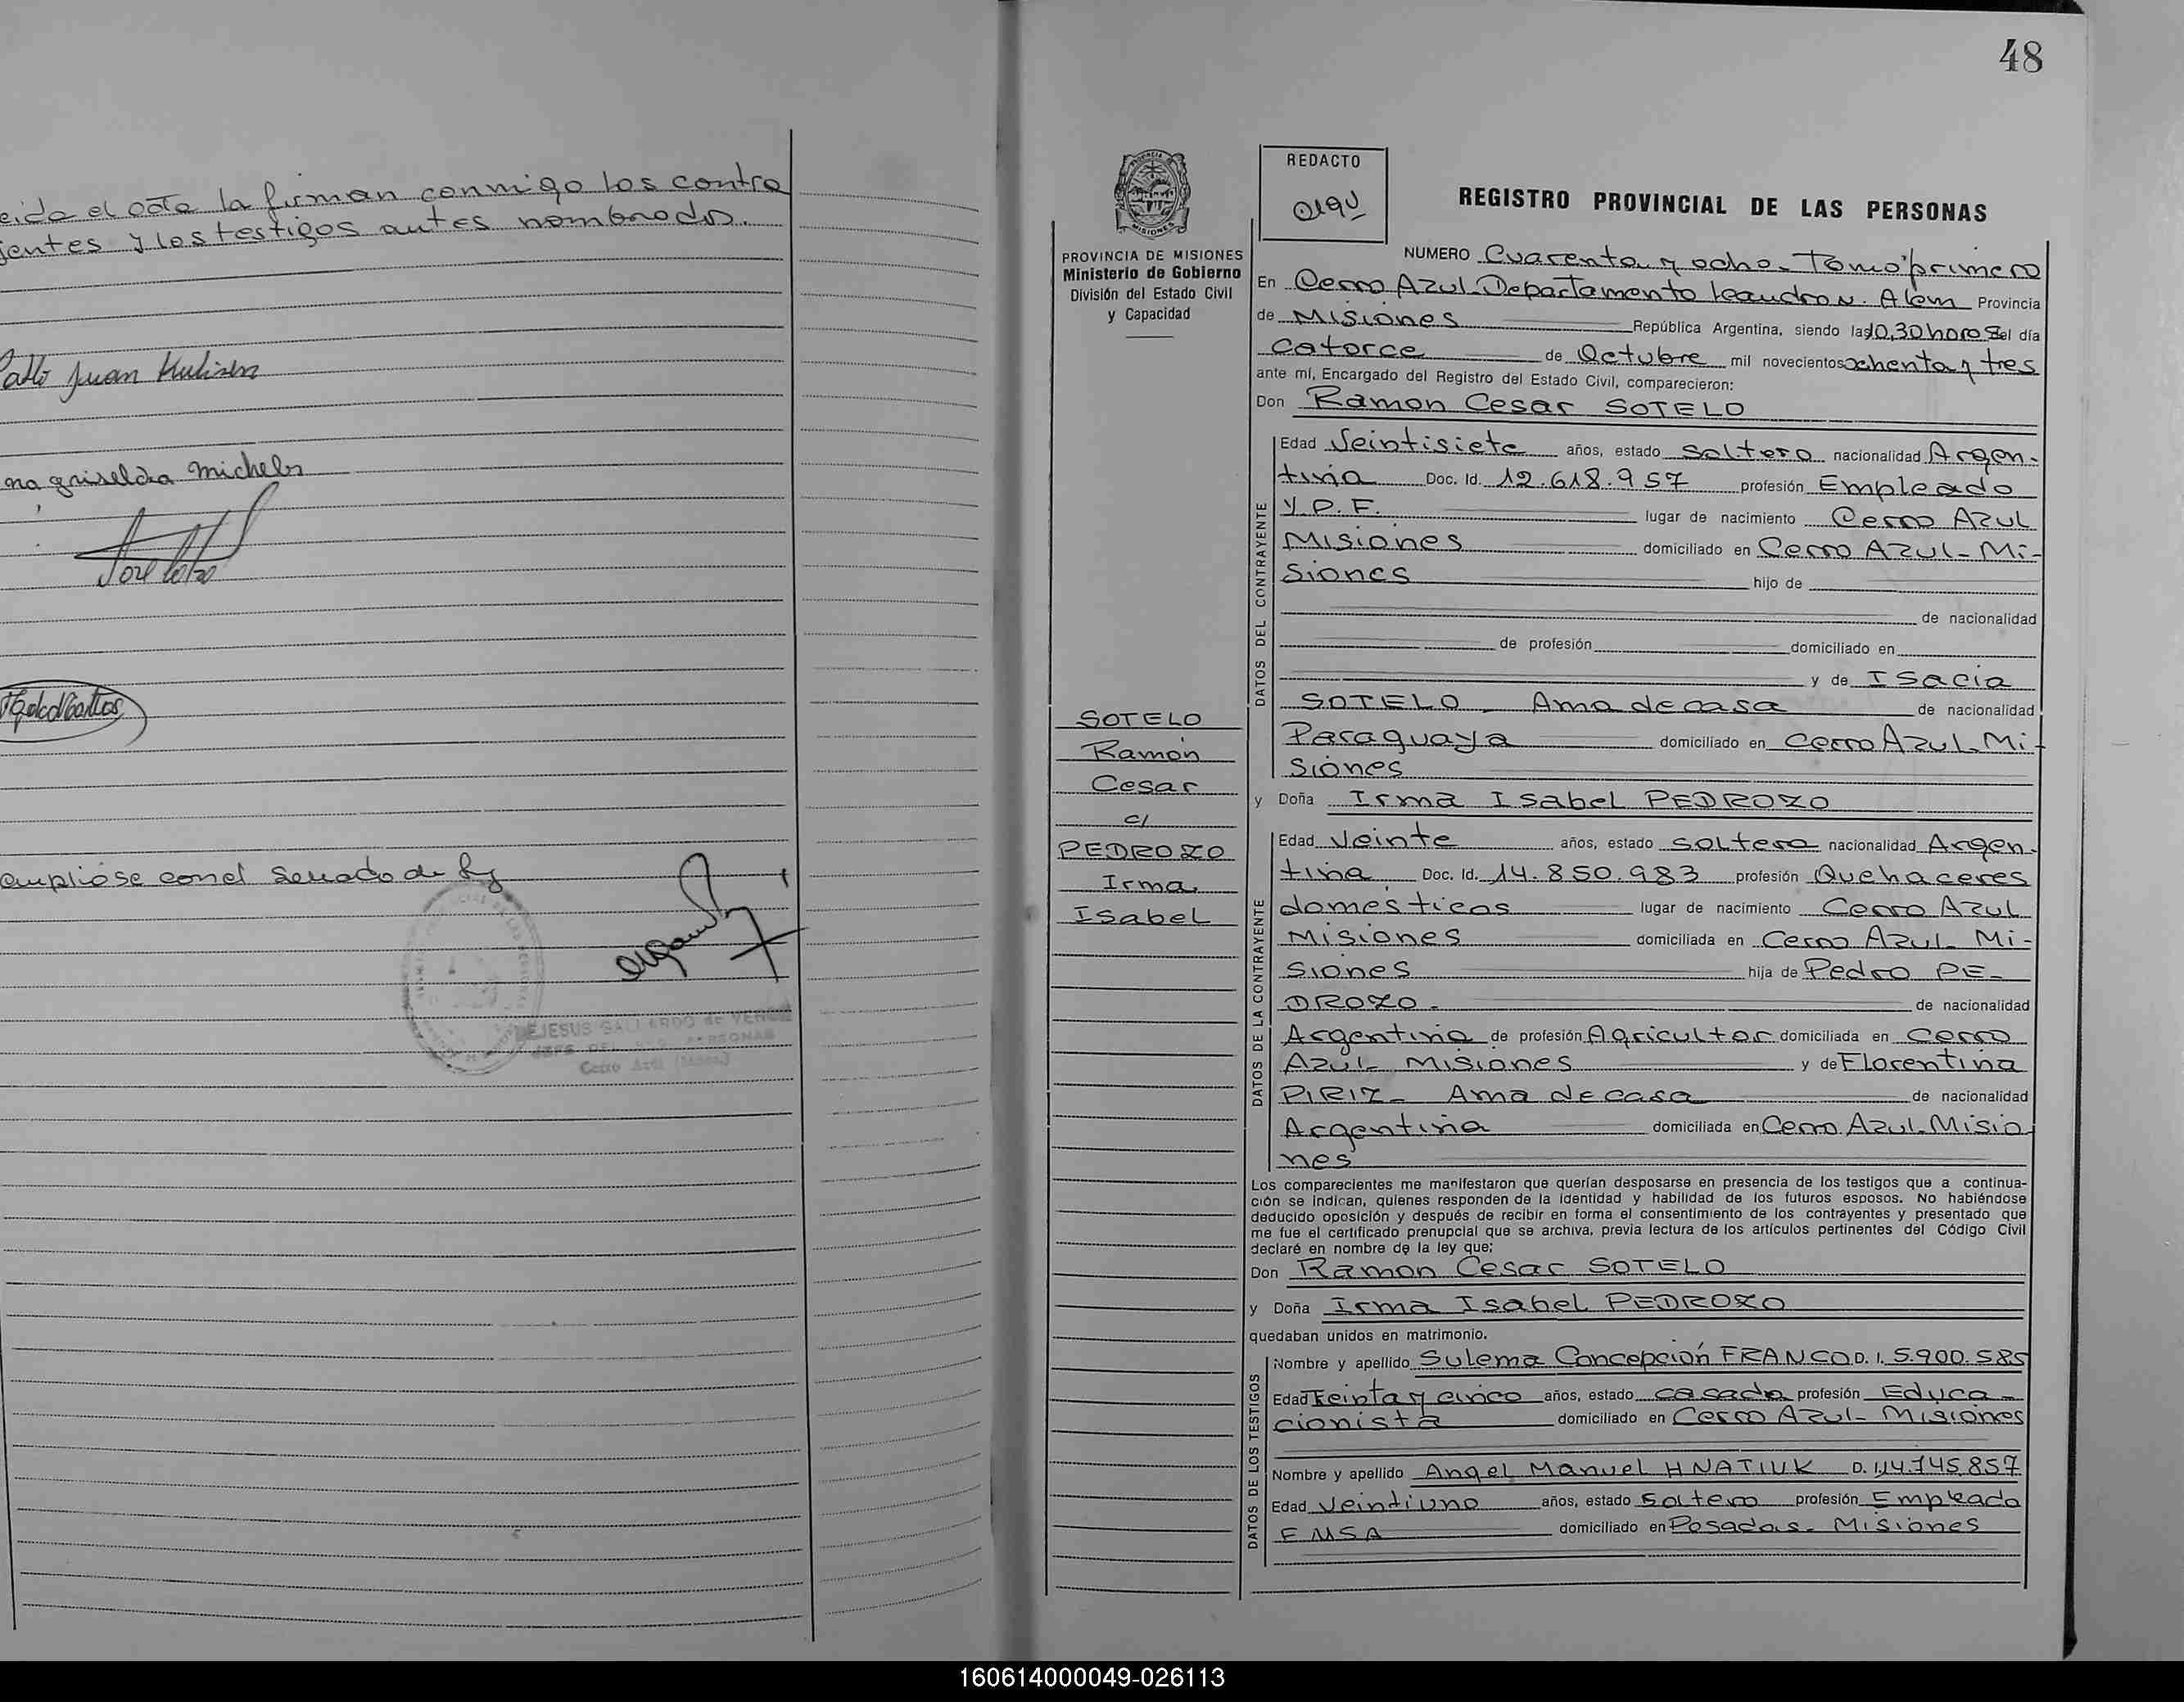 el acta la firman conmigo los contra
yentes y los testigos antes nombrados.
Juan
griselda michels
cumpliose con el sellado de ley
DEJESUS GALLARDO de
JEFE DEL
Cerro Azul
48
PROVINCIA DE MISIONES
Ministerio de Gobierno
División del Estado Civil
y Capacidad
SOTELO
Ramon
Cesar
c/
PEDROZO
Irma
Isabel
REDACTO
REGISTRO PROVINCIAL DE LAS PERSONAS
NUMERO Cuarenta y ocho - Tomo primero
En Cerro Azul Departamento Leandro N. Alem Provincia
de Misiones República Argentina, siendo las 10,30 horas del día
Catorce de Octubre mil novecientos ochenta y tres
ante mí, Encargado del Registro del Estado Civil, comparecieron:
Don Ramon Cesar SOTELO
DATOS DEL CONTRAYENTE
Edad Veintisiete años, estado Soltero nacionalidad Argen-
tina Doc. Id. 12.618.957 profesión Empleado
Y.P.F. lugar de nacimiento Cerro Azul
Misiones domiciliado en Cerro Azul - Mi-
siones hijo de
de nacionalidad
de profesión domiciliado en
y de Isacia
SOTELO - Ama de casa de nacionalidad
Paraguaya domiciliado en Cerro Azul - Mi-
siones
y Doña Irma Isabel PEDROZO
DATOS DE LA CONTRAYENTE
Edad Veinte años, estado Soltera nacionalidad Argen-
tina Doc. Id. 14.850.983 profesión Quehaceres
domésticos lugar de nacimiento Cerro Azul
Misiones domiciliada en Cerro Azul - Mi-
siones hija de Pedro PE-
DROZO - de nacionalidad
Argentina de profesión Agricultor domiciliada en Cerro
Azul - Misiones y de Florentina
PIRIZ - Ama de casa de nacionalidad
Argentina domiciliada en Cerro Azul - Misio
nes
Los comparecientes me manifestaron que querían desposarse en presencia de los testigos que a continua-
ción se indican, quienes responden de la identidad y habilidad de los futuros esposos. No habiéndose
deducido oposición y después de recibir en forma el consentimiento de los contrayentes y presentado que
me fue el certificado prenupcial que se archiva, previa lectura de los artículos pertinentes del Código Civil
declaré en nombre de la ley que:
Don Ramon Cesar SOTELO
y Doña Irma Isabel PEDROZO
quedaban unidos en matrimonio.
DATOS DE LOS TESTIGOS
Nombre y apellido Sulema Concepción FRANCO D. I. 5.900.585
Edad Treinta y cinco años, estado casada profesión Educa-
cionista domiciliado en Cerro Azul - Misiones
Nombre y apellido Angel Manuel HNATIUK D. I. 14.745.857
Edad Veintiuno años, estado Soltero profesión Empleado
EMSA domiciliado en Posadas - Misiones
160614000049-026113